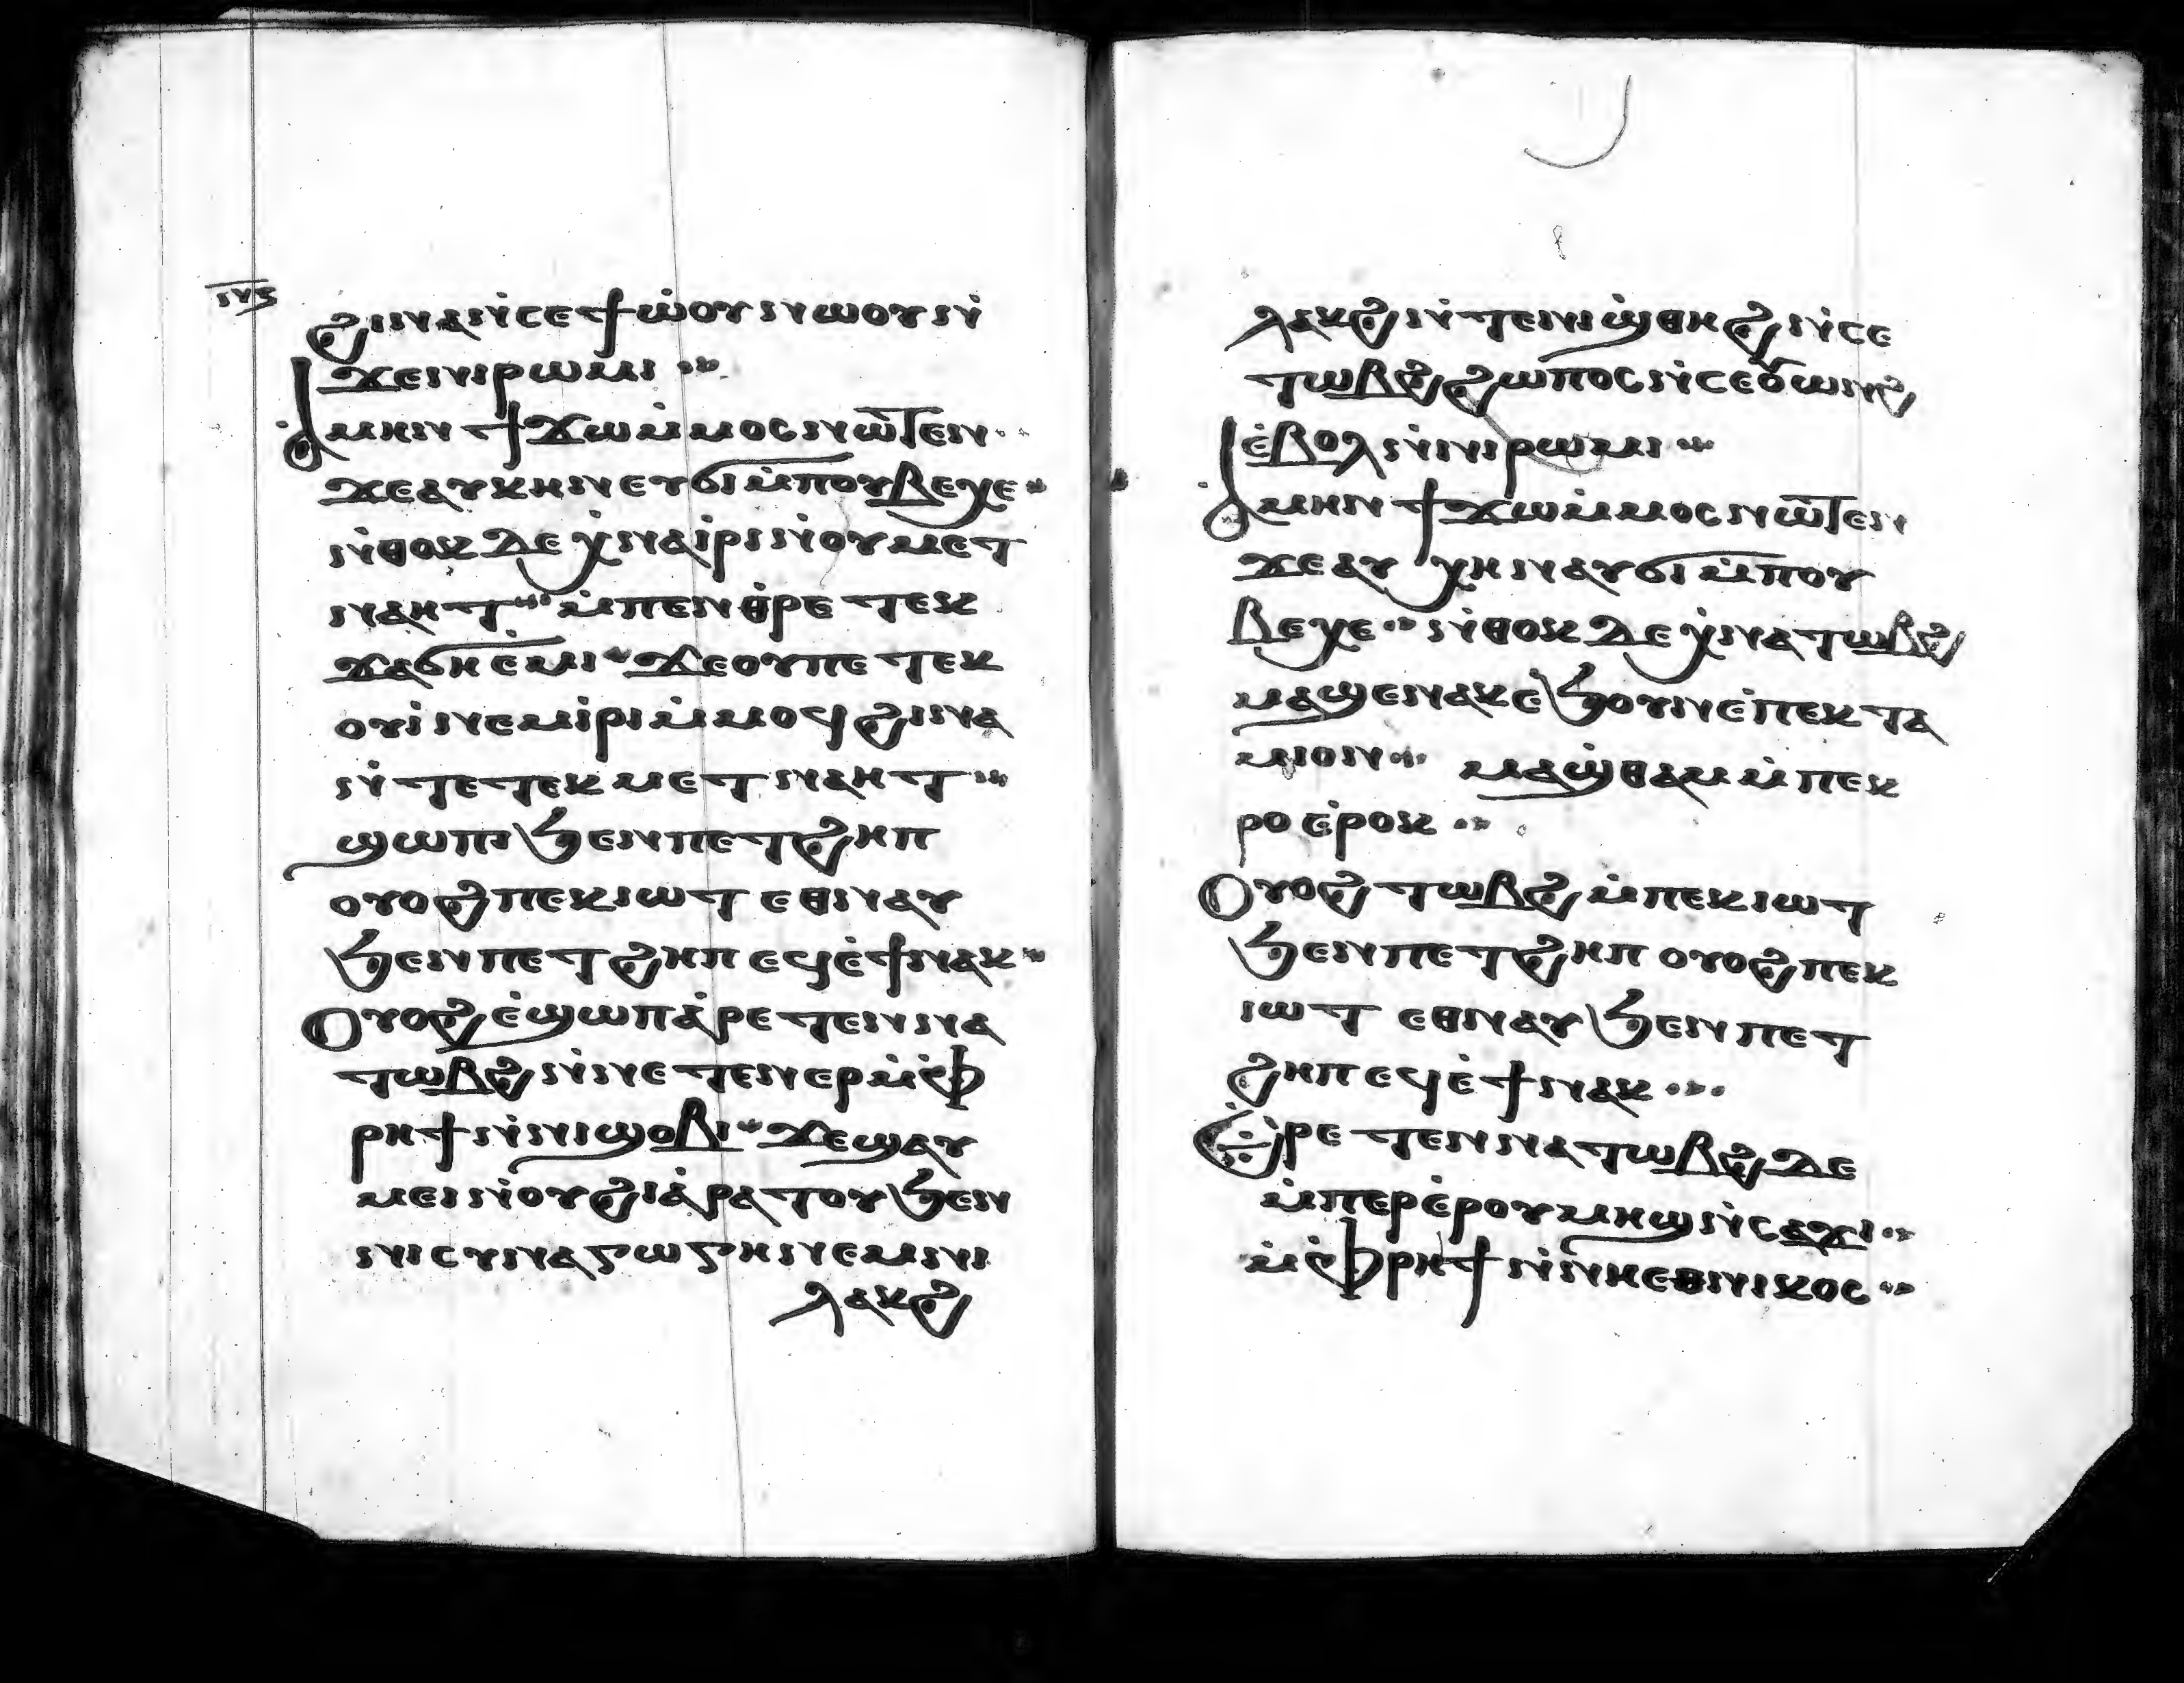 ⲛ̅ⲋ̅
ϩⲓⲛⲁⲛ̇ⲥⲉϯⲱ̇ⲟⲩⲛⲱⲟⲩⲛ̇
ϫⲉⲛⲓⲣⲱⲙⲓ
ⲁⲙⲏⲛ ϯϫⲱⲙ̇ⲙⲟⲥⲛⲱⲧⲉⲛ
ϫⲉⲁⲩⲕⲏⲛⲉⲩϭⲓⲙ̇ⲡⲟⲩⲃⲉⲭⲉ
ⲛ̇ⲑⲟⲕ ⲇⲉ ⲭ̇ⲛⲁⲓ̇ⲣⲓⲛ̇ⲟⲩⲙⲉⲧ
ⲛⲁⲏⲧ ⲙ̇ⲡⲉⲛⲑⲣⲉ ⲧⲉⲕ
ϫⲁϭⲏⲉ̇ⲙⲓ ϫⲉⲟⲩⲡⲉ ⲧⲉⲕ
ⲟⲩⲓ̇ⲛⲉⲙⲓ̇ⲣⲓ ⲙ̇ⲙⲟϥϩⲓⲛⲁ
ⲛ̇ⲧⲉⲧⲉⲕⲙⲉⲧⲛⲁⲏⲧ
ϣⲱⲡⲓϧⲉⲛⲡⲉⲧϩⲏⲡ
ⲟⲩⲟϩⲡⲉⲕⲓⲱⲧ ⲉⲑⲛⲁⲩ
ϧⲉⲛⲡⲉⲧϩⲏⲡ ⲉϥⲉ̇ϯⲛⲁⲕ
Ⲟⲩⲟϩⲉ̇ϣⲱⲡⲁ̇ⲣⲉⲧⲉⲛⲛⲁ
ⲧⲱⲃϩⲛ̇ⲛⲉⲧⲉⲛⲉⲣⲙ̇ⲫ̇
ⲣⲏϯⲛ̇ⲛⲓϣⲟⲃⲓ ϫⲉϣⲁⲩ
ⲙⲉⲓⲛ̇ⲟⲩϩⲓⲁ̇ⲣⲁⲧⲟⲩϧⲉⲛ
ⲛⲓⲥⲩⲛⲁⲅⲱⲅⲏⲛⲉⲙⲛⲓ
ⲗⲁⲕϩ
ⲗⲁⲕϩⲛ̇ⲧⲉⲛⲓϣ̇ⲑⲏϩⲛ̇ⲥⲉ
ⲧⲱⲃϩϩⲱⲡⲟⲥⲛ̇ⲥⲉⲟⲩⲱⲛϩ
ⲉ̇ⲃⲟⲗⲛ̇ⲛⲓⲣⲱⲙⲓ
ⲁⲙⲏⲛ ϯϫⲱⲙ̇ⲙⲟⲥⲛⲱⲧⲉⲛ
ϫⲉⲁⲩ ⲭⲏⲛⲁⲩϭⲓⲙ̇ⲡⲟⲩ
ⲃⲉⲭⲉ ⲛ̇ⲑⲟⲕ ⲇⲉ ⲭ̇ⲛⲁⲧⲱⲃϩ
ⲙⲁϣⲉⲛⲁⲕⲉ̇ϧⲟⲩⲛⲉ̇ⲡⲉⲕⲧⲁ
ⲙⲓⲟⲛ ⲙⲁϣ̇ⲑⲁⲙ ⲙ̇ⲡⲉⲕ
ⲣⲟ ⲉ̇ⲣⲟⲕ
Ⲟⲩⲟϩ ⲧⲱⲃϩ ⲙ̇ⲡⲉⲕⲓⲱⲧ
ϧⲉⲛⲡⲉⲧϩⲏⲡ ⲟⲩⲟϩⲡⲉⲕ
ⲓⲱⲧ ⲉⲑⲛⲁⲩ ϧⲉⲛⲡⲉⲧ
ϩⲏⲡ ⲉϥⲉ̇ϯⲛⲁⲕ
Ⲉⲣⲉ ⲧⲉⲛⲛⲁⲧⲱⲃϩ ⲇⲉ
ⲙ̇ⲡⲉⲣⲉ̇ⲣⲟⲩⲙⲏϣⲛ̇ⲥⲁϫⲓ
ⲙ̇ⲫ̇ⲣⲏϯⲛ̇ⲛⲏⲉⲑⲛⲓⲕⲟⲥ